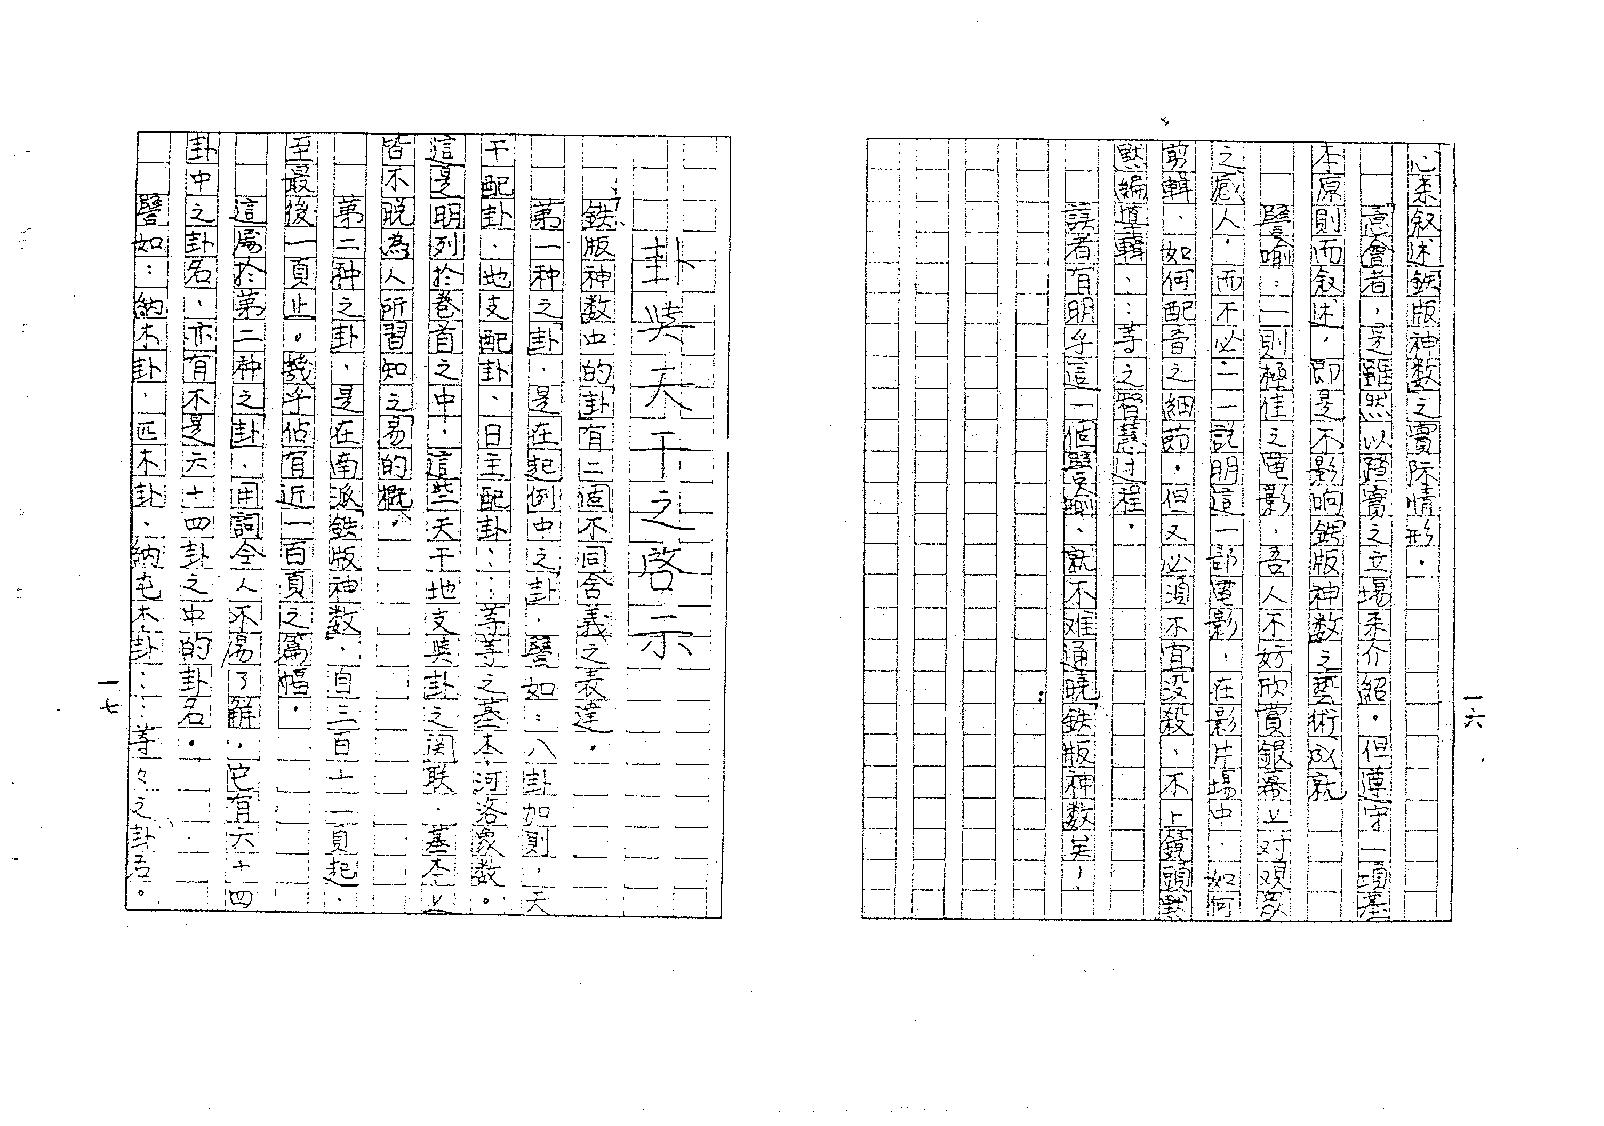 心来叙述鉄版神数之實际情形．
意會者，是雖然以踏實之立場来介紹．但遵守一項基
本原則而叙述，即是不影响鉄版神数之藝術成就
譬喻：一則極佳之電影．吾人不妨欣賞銀幕上对观眾
之感人．而不必一一說明這一部電影．在影片場中．如何
剪輯、如何配音之細節．但又必須不宜没殺、不上鏡頭默
默編導輯．．等之智慧过程．
讀者有明乎這一個譬喻、就不难通曉鉄版神数矣！
一六
卦與天干之啓示
「鉄版神数中的卦」有二個不同含義之表達．
第一种之卦．是在起例中之卦．譬如：八卦加則，天
干配卦．地支配卦、日主配卦：：等等之基本河洛象数。
這是明列於卷首之中．這些天干地支與卦之関联．基本上
皆不脱為人所習知之易的概．
第二种之卦．是在南派鉄版神数．自三百十一頁起．
至最後一頁止．幾乎佔有近一百頁之篇幅．
這屬於第二种之卦．用詞令人不易了解．它有六十四
卦中之卦名．亦有不是六十四卦之中的卦名．
譬如：納木卦．匹木卦．納屯木卦：：等々之卦名。
一七